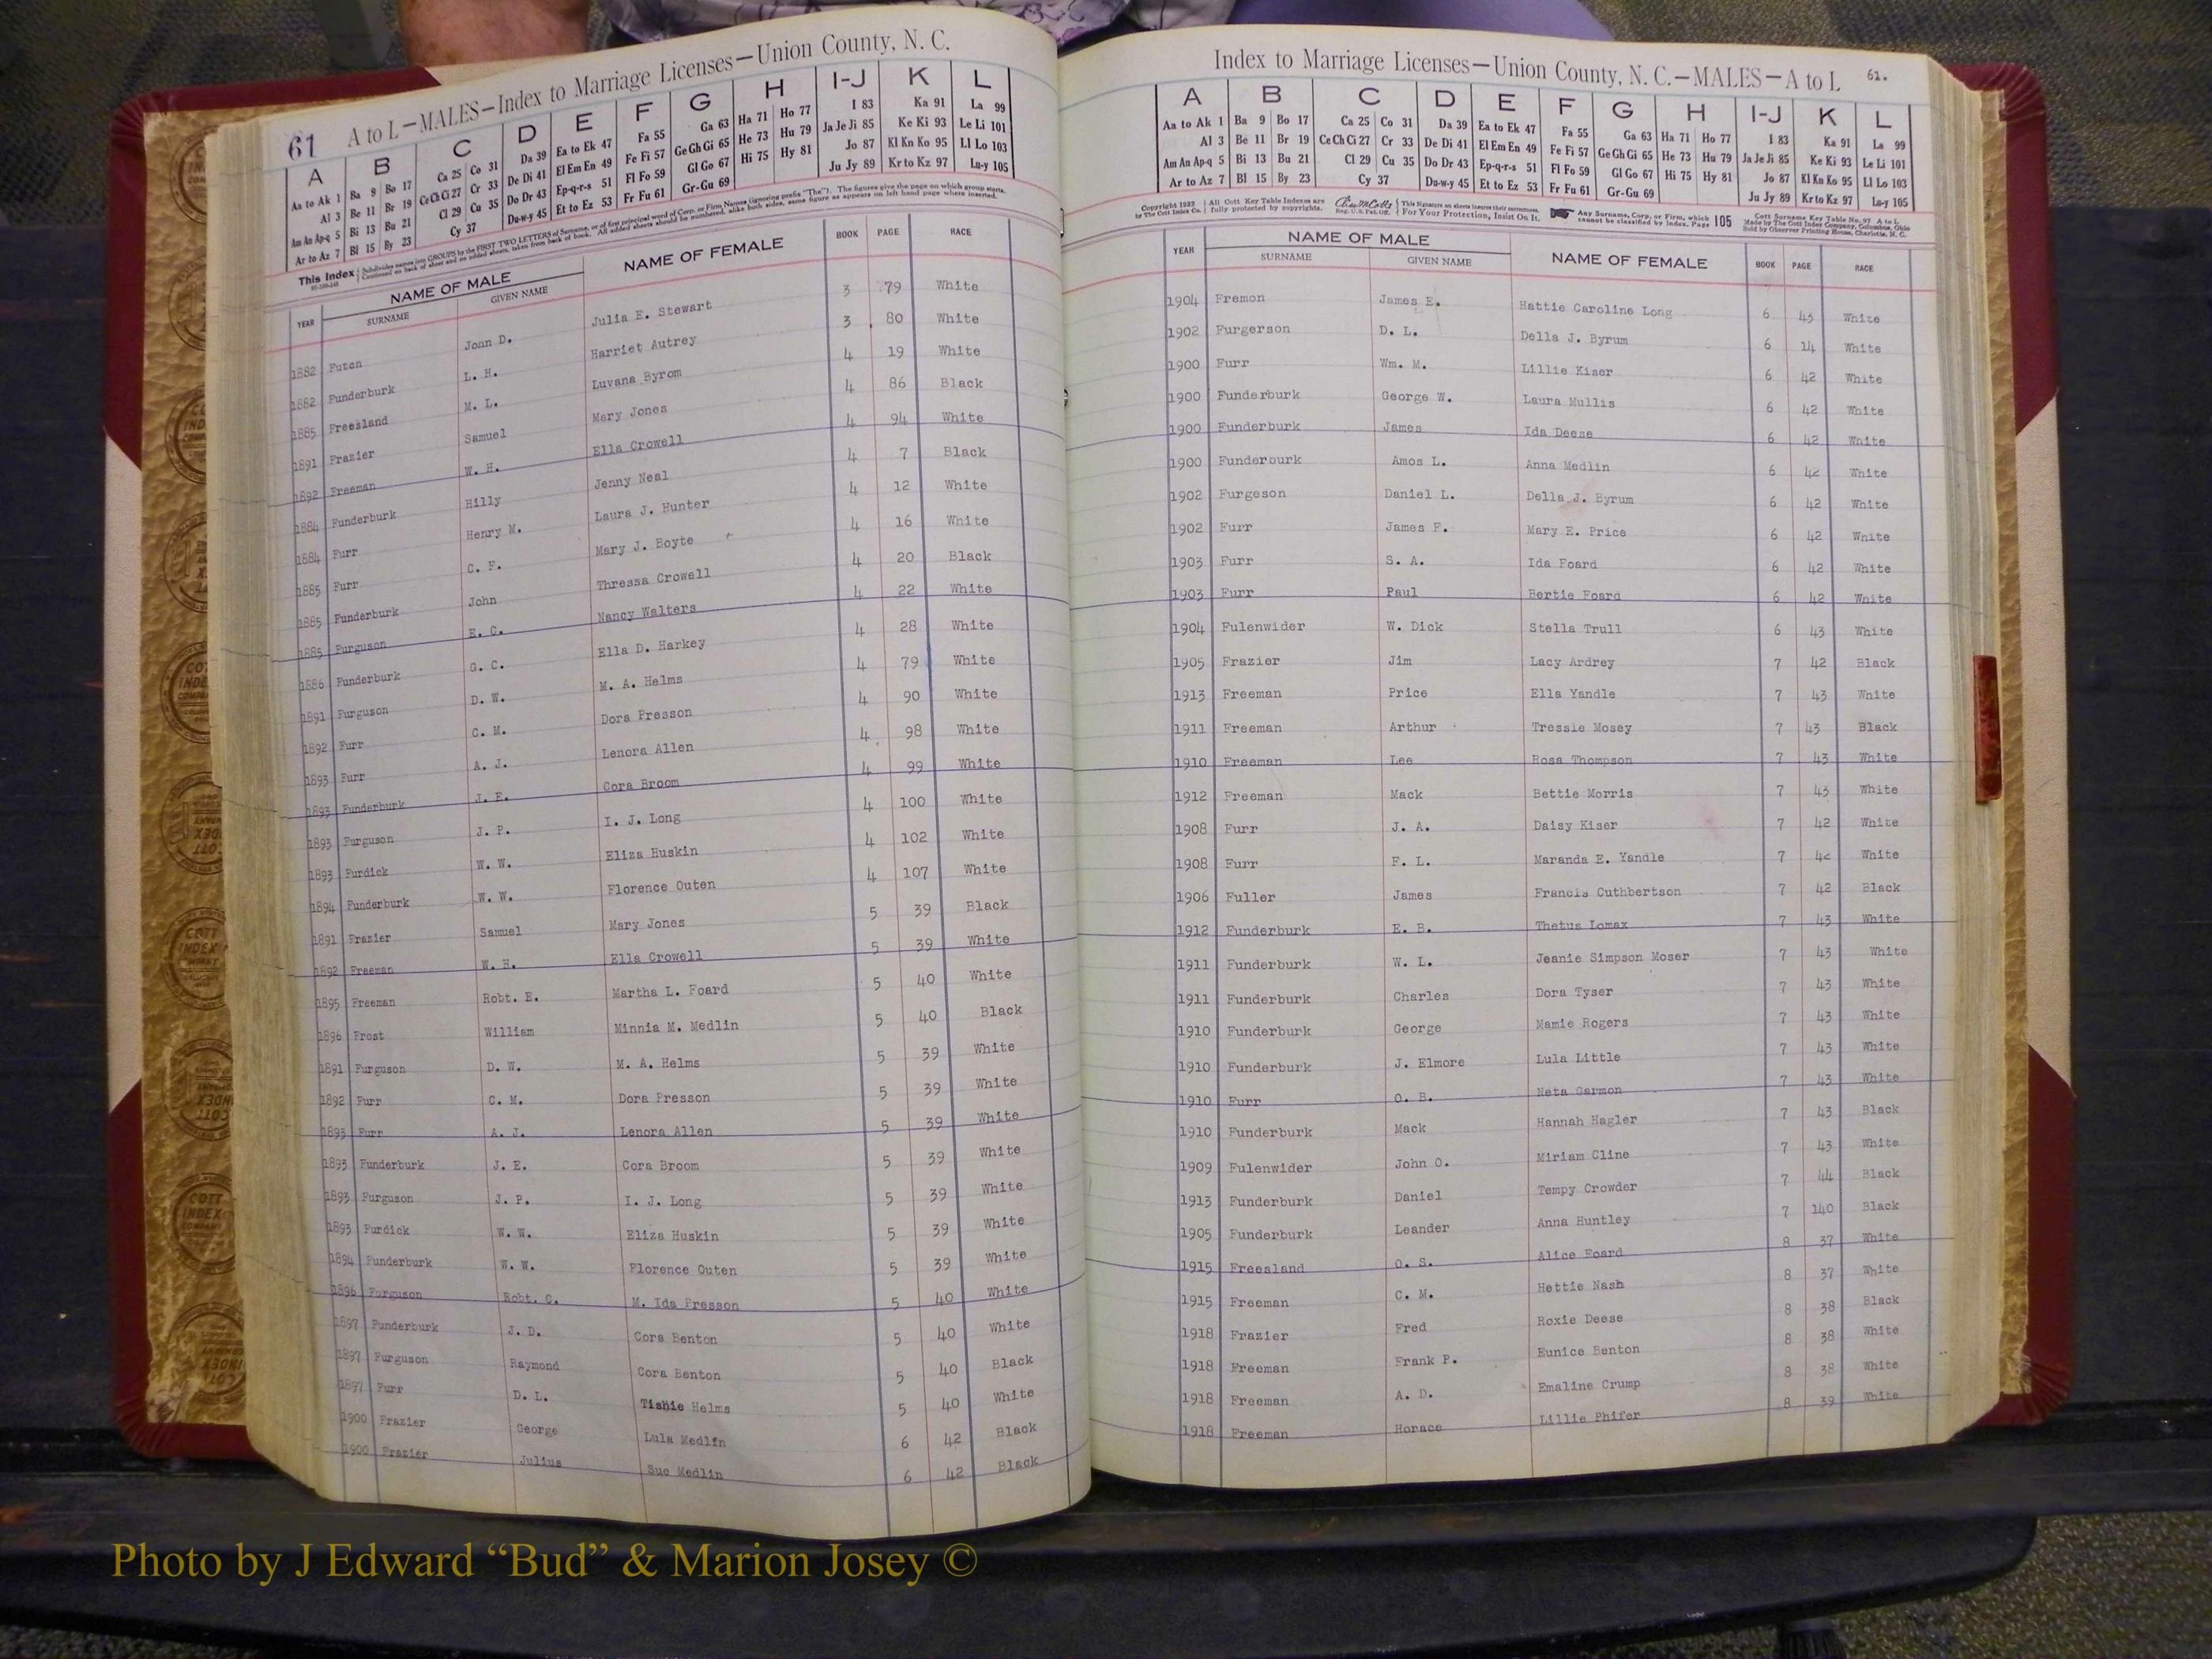 61 A to L—MALES—Index to Marriage Licenses—Union County, N. C.
A B C D E F G H I-J K L
Aa to Ak 1 Ba 9 Bo 17 Ca 25 Co 31 Da 39 Ea to Ek 47 Fa 55 Ga 63 Ha 71 Ho 77 I 83 Ka 91 La 99
Al 3 Be 11 Br 19 Ce Ch Ci 27 Cr 33 De Di 41 El Em En 49 Fe Fi 57 Ge Gh Gi 65 He 73 Hu 79 Ja Je Ji 85 Ke Ki 93 Le Li 101
Am An Ap-q 5 Bi 13 Bu 21 Cl 29 Cu 35 Do Dr 43 Ep-q-r-s 51 Fl Fo 59 Gl Go 67 Hi 75 Hy 81 Jo 87 Kl Kn Ko 95 Ll Lo 103
Ar to Az 7 Bl 15 By 23 Cy 37 Du-w-y 45 Et to Ez 53 Fr Fu 61 Gr-Gu 69 Ju Jy 89 Kr to Kz 97 Lu-y 105
This Index Subdivides names into GROUPS by the FIRST TWO LETTERS of Surname, or of first principal word of Corp. or Firm Names (ignoring prefix "The"). The figures give the page on which group starts.
Continued on back of sheet and on added sheets, taken from back of book. All added sheets should be numbered, alike both sides, same figure as appears on left hand page where inserted.
YEAR NAME OF MALE SURNAME GIVEN NAME NAME OF FEMALE BOOK PAGE RACE
1882 Futch John D. Julia E. Stewart 3 79 White
1882 Funderburk L. H. Harriet Autrey 3 80 White
1885 Freesland M. L. Luvana Byrom 4 19 White
1891 Frazier Samuel Mary Jones 4 86 Black
1892 Freeman W. H. Ella Crowell 4 94 White
1884 Funderburk Hilly Jenny Neal 4 7 Black
1884 Furr Henry M. Laura J. Hunter 4 12 White
1885 Furr C. F. Mary J. Boyte 4 16 White
1885 Funderburk John Thressa Crowell 4 20 Black
1885 Furguson E. C. Nancy Walters 4 22 White
1886 Funderburk G. C. Ella D. Harkey 4 28 White
1891 Furguson D. W. M. A. Helms 4 79 White
1892 Furr C. M. Dora Presson 4 90 White
1893 Furr A. J. Lenora Allen 4 98 White
1893 Funderburk J. E. Cora Broom 4 99 White
1893 Furguson J. P. I. J. Long 4 100 White
1893 Furdick W. W. Eliza Huskin 4 102 White
1894 Funderburk W. W. Florence Outen 4 107 White
1891 Frazier Samuel Mary Jones 5 39 Black
1892 Freeman W. H. Ella Crowell 5 39 White
1895 Freeman Robt. E. Martha L. Foard 5 40 White
1896 Frost William Minnia M. Medlin 5 40 Black
1891 Furguson D. W. M. A. Helms 5 39 White
1892 Furr C. M. Dora Presson 5 39 White
1893 Furr A. J. Lenora Allen 5 39 White
1893 Funderburk J. E. Cora Broom 5 39 White
1893 Furguson J. P. I. J. Long 5 39 White
1893 Furdick W. W. Eliza Huskin 5 39 White
1894 Funderburk W. W. Florence Outen 5 39 White
1896 Furguson Robt. C. M. Ida Presson 5 40 White
1897 Funderburk J. D. Cora Benton 5 40 White
1897 Furguson Raymond Cora Benton 5 40 Black
1897 Furr D. L. Tishie Helms 5 40 White
1900 Frazier George Lula Medlin 6 42 Black
1900 Frazier Julius Sue Medlin 6 42 Black
Index to Marriage Licenses—Union County, N. C.—MALES—A to L 61.
A B C D E F G H I-J K L
Aa to Ak 1 Ba 9 Bo 17 Ca 25 Co 31 Da 39 Ea to Ek 47 Fa 55 Ga 63 Ha 71 Ho 77 I 83 Ka 91 La 99
Al 3 Be 11 Br 19 Ce Ch Ci 27 Cr 33 De Di 41 El Em En 49 Fe Fi 57 Ge Gh Gi 65 He 73 Hu 79 Ja Je Ji 85 Ke Ki 93 Le Li 101
Am An Ap-q 5 Bi 13 Bu 21 Cl 29 Cu 35 Do Dr 43 Ep-q-r-s 51 Fl Fo 59 Gl Go 67 Hi 75 Hy 81 Jo 87 Kl Kn Ko 95 Ll Lo 103
Ar to Az 7 Bl 15 By 23 Cy 37 Du-w-y 45 Et to Ez 53 Fr Fu 61 Gr-Gu 69 Ju Jy 89 Kr to Kz 97 Lu-y 105
Copyright 1932 All Cott Key Table Indexes are This Signature on sheets insures their correctness. Any Surname, Corp. or Firm, which 105 Cott Surname Key Table No. 97 A to L
by The Cott Index Co. fully protected by copyrights. Reg. U. S. Pat. Off. For Your Protection, Insist On It. cannot be classified by Index, Page Made by The Cott Index Company, Columbus, Ohio
Sold by Observer Printing House, Charlotte, N. C.
YEAR NAME OF MALE SURNAME GIVEN NAME NAME OF FEMALE BOOK PAGE RACE
1904 Fremon James E. Hattie Caroline Long 6 43 White
1902 Furgerson D. L. Della J. Byrum 6 14 White
1900 Furr Wm. M. Lillie Kiser 6 42 White
1900 Funderburk George W. Laura Mullis 6 42 White
1900 Funderburk James Ida Deese 6 42 White
1900 Funderourk Amos L. Anna Medlin 6 42 White
1902 Furgeson Daniel L. Della J. Byrum 6 42 White
1902 Furr James F. Mary E. Price 6 42 White
1903 Furr S. A. Ida Foard 6 42 White
1903 Furr Paul Bertie Foard 6 42 White
1904 Fulenwider W. Dick Stella Trull 6 43 White
1905 Frazier Jim Lacy Ardrey 7 42 Black
1913 Freeman Price Ella Yandle 7 43 White
1911 Freeman Arthur Tressie Mosey 7 43 Black
1910 Freeman Lee Rosa Thompson 7 43 White
1912 Freeman Mack Bettie Morris 7 43 White
1908 Furr J. A. Daisy Kiser 7 42 White
1908 Furr F. L. Maranda E. Yandle 7 42 White
1906 Fuller James Francis Cuthbertson 7 42 Black
1912 Funderburk E. B. Thetus Lomax 7 43 White
1911 Funderburk W. L. Jeanie Simpson Moser 7 43 White
1911 Funderburk Charles Dora Tyser 7 43 White
1910 Funderburk George Mamie Rogers 7 43 White
1910 Funderburk J. Elmore Lula Little 7 43 White
1910 Furr O. B. Neta Garmon 7 43 White
1910 Funderburk Mack Hannah Hagler 7 43 Black
1909 Fulenwider John O. Miriam Cline 7 43 White
1913 Funderburk Daniel Tempy Crowder 7 44 Black
1905 Funderburk Leander Anna Huntley 7 140 Black
1915 Freesland O. S. Alice Foard 8 37 White
1915 Freeman C. M. Hettie Nash 8 37 White
1918 Frazier Fred Roxie Deese 8 38 Black
1918 Freeman Frank P. Eunice Benton 8 38 White
1918 Freeman A. D. Emaline Crump 8 38 White
1918 Freeman Horace Lillie Phifer 8 39 White
Photo by J Edward “Bud” & Marion Josey ©